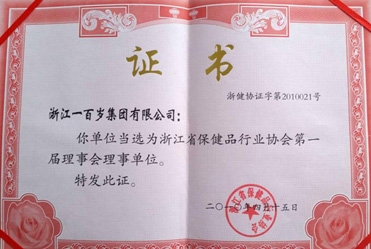 证 书
浙健协证字第2010021号
浙江一百岁集团有限公司：
你单位当选为浙江省保健品行业协会第一
届理事会理事单位。
特发此证。
二〇一〇年四月十五日